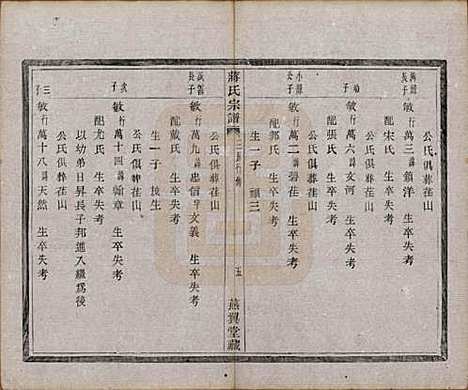 公氏俱葬茬山
長子 敏行萬三諱鎖洋 生卒失考
配宋氏 生卒失考
公氏俱葬茬山
幼子 敏行萬六諱文河 生卒失考
配張氏 生卒失考
公氏俱葬茬山
公子 敏行萬十二諱碧茬 生卒失考
配郭氏 生卒失考
生一子 頭三
蔣氏宗譜
五
燕翼堂藏
長子 敏行萬九諱忠信字文義 生卒失考
配戴氏 生卒失考
生一子 接生
次子 敏行萬十四諱翰章 生卒失考
配尤氏 生卒失考
公氏俱葬茬山
以幼弟日昇長子邦進入繼爲後
三子 敏行萬十八諱天然 生卒失考